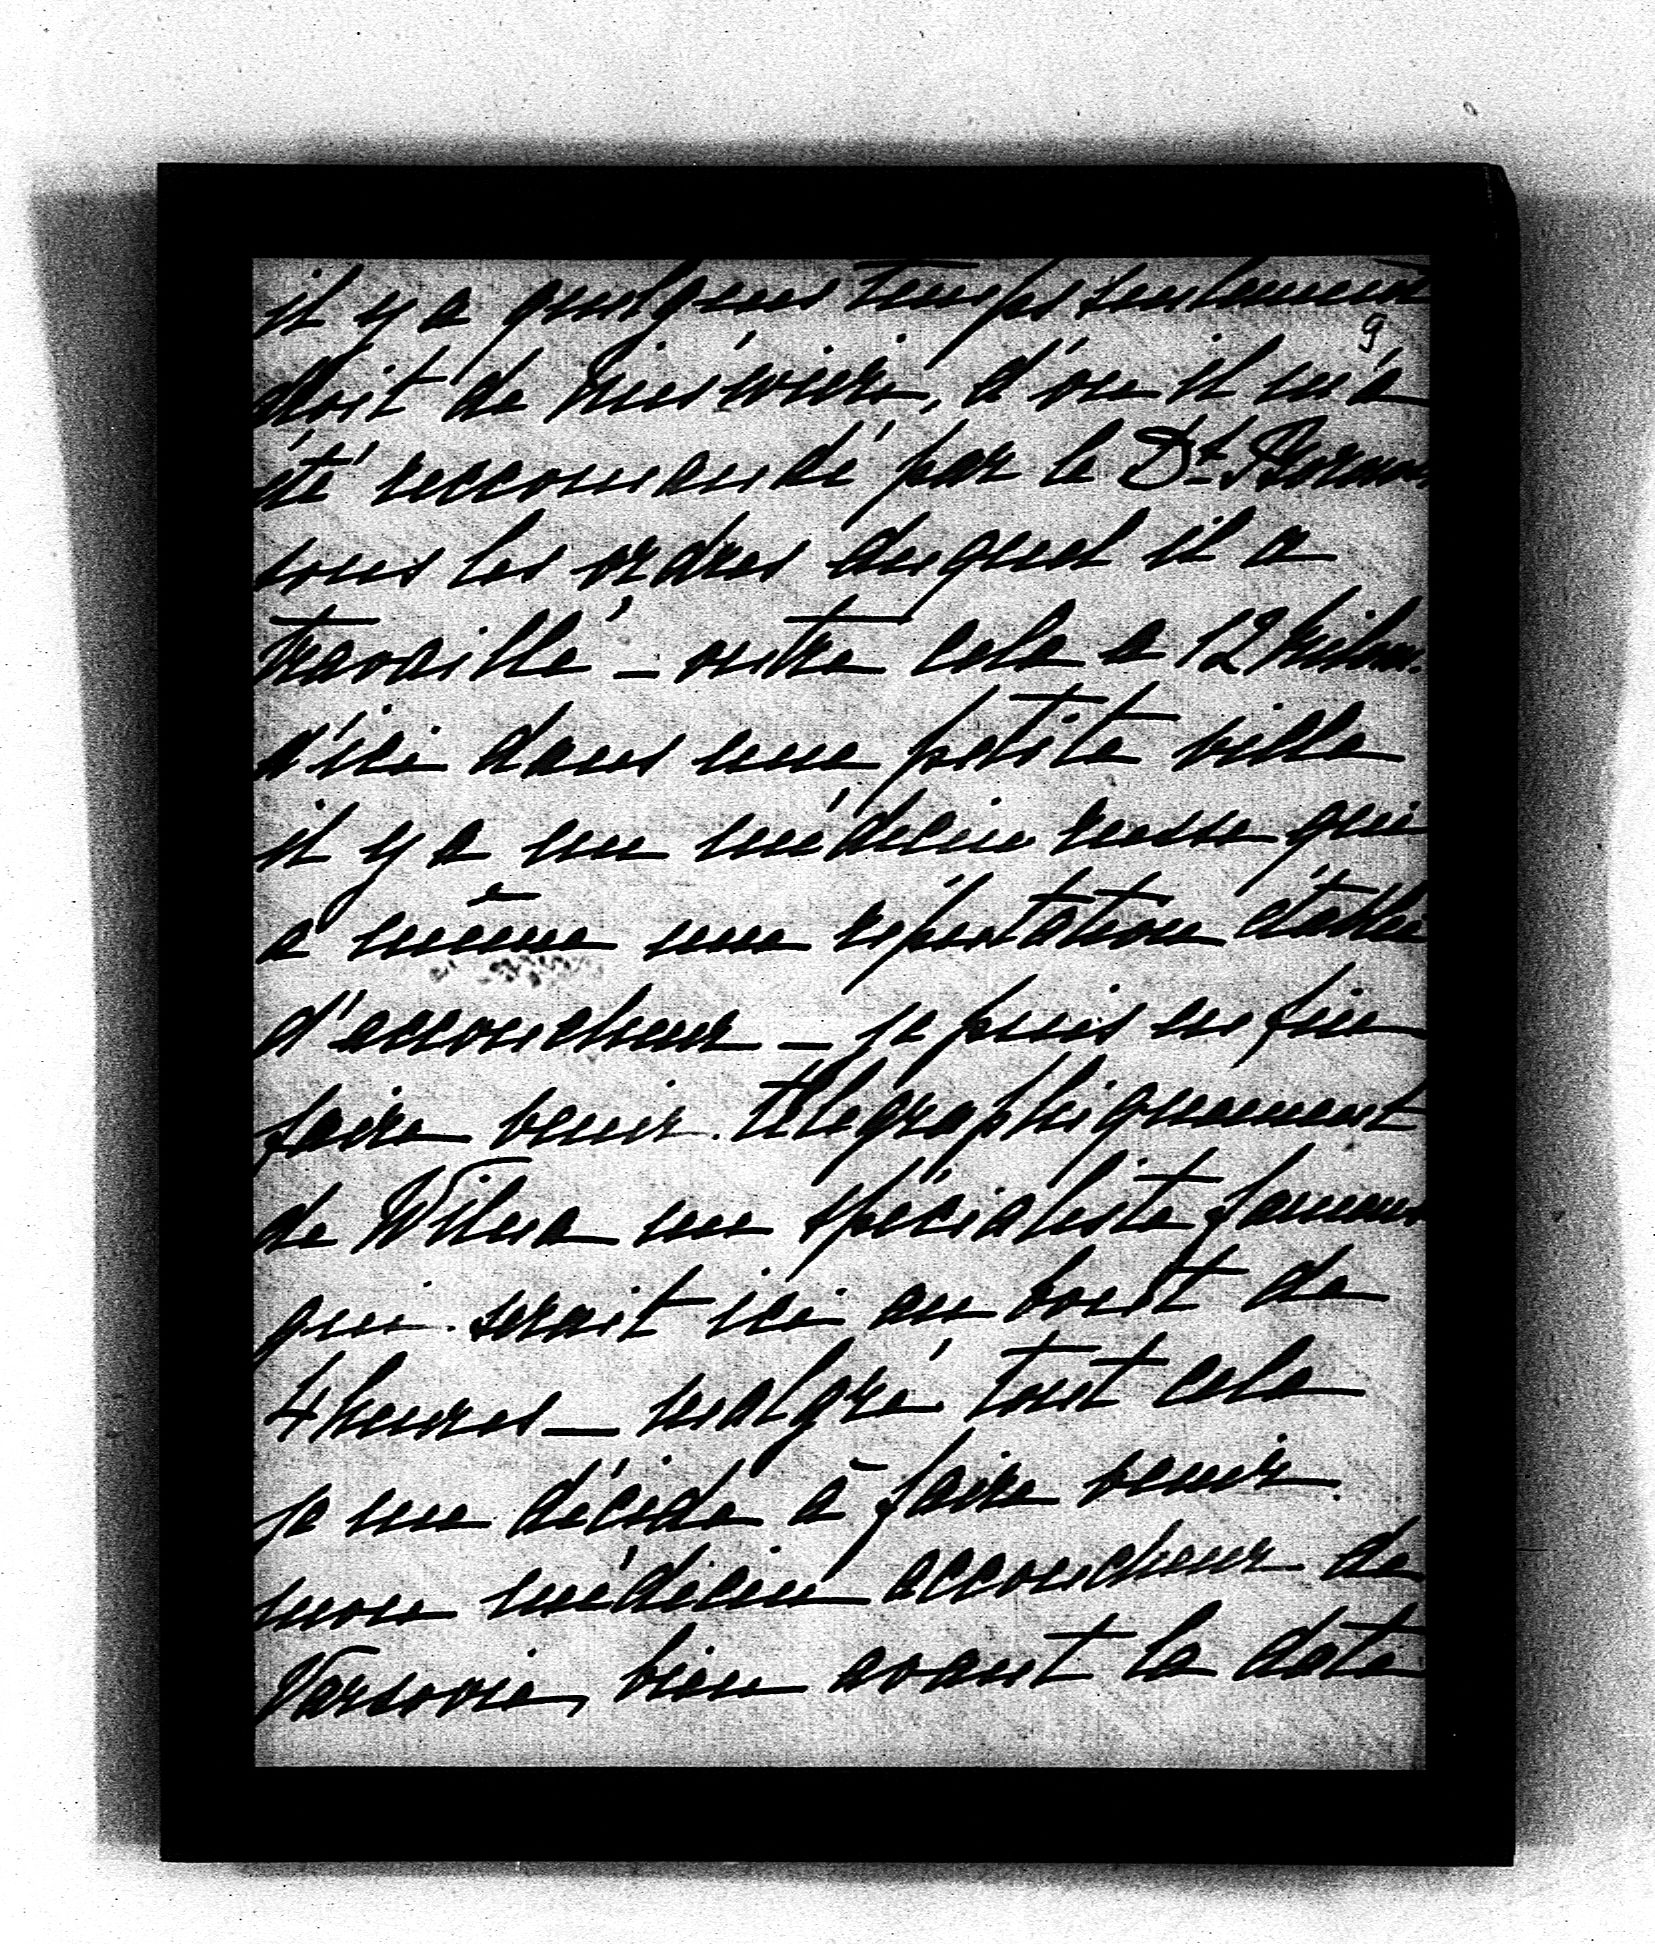 il y a quelques temps seulement
9
droit de Nieśwież, d'où il m'a
été reccomandé par le Dr
sous les ordres duquel il a
travaillé — outre cela a 12 kilom.
d'ici dans une petite ville
il y a un médecin russe qui
a même une réputation établie
d'accoucheur — je puis enfin
faire venir télégraphiquement
de Wilna un spécialiste fameux
qui serait ici au bout de
4 heures — malgré tout cela
je me décide à faire venir
mon médecin accoucheur de
Varsovie, bien avant la date